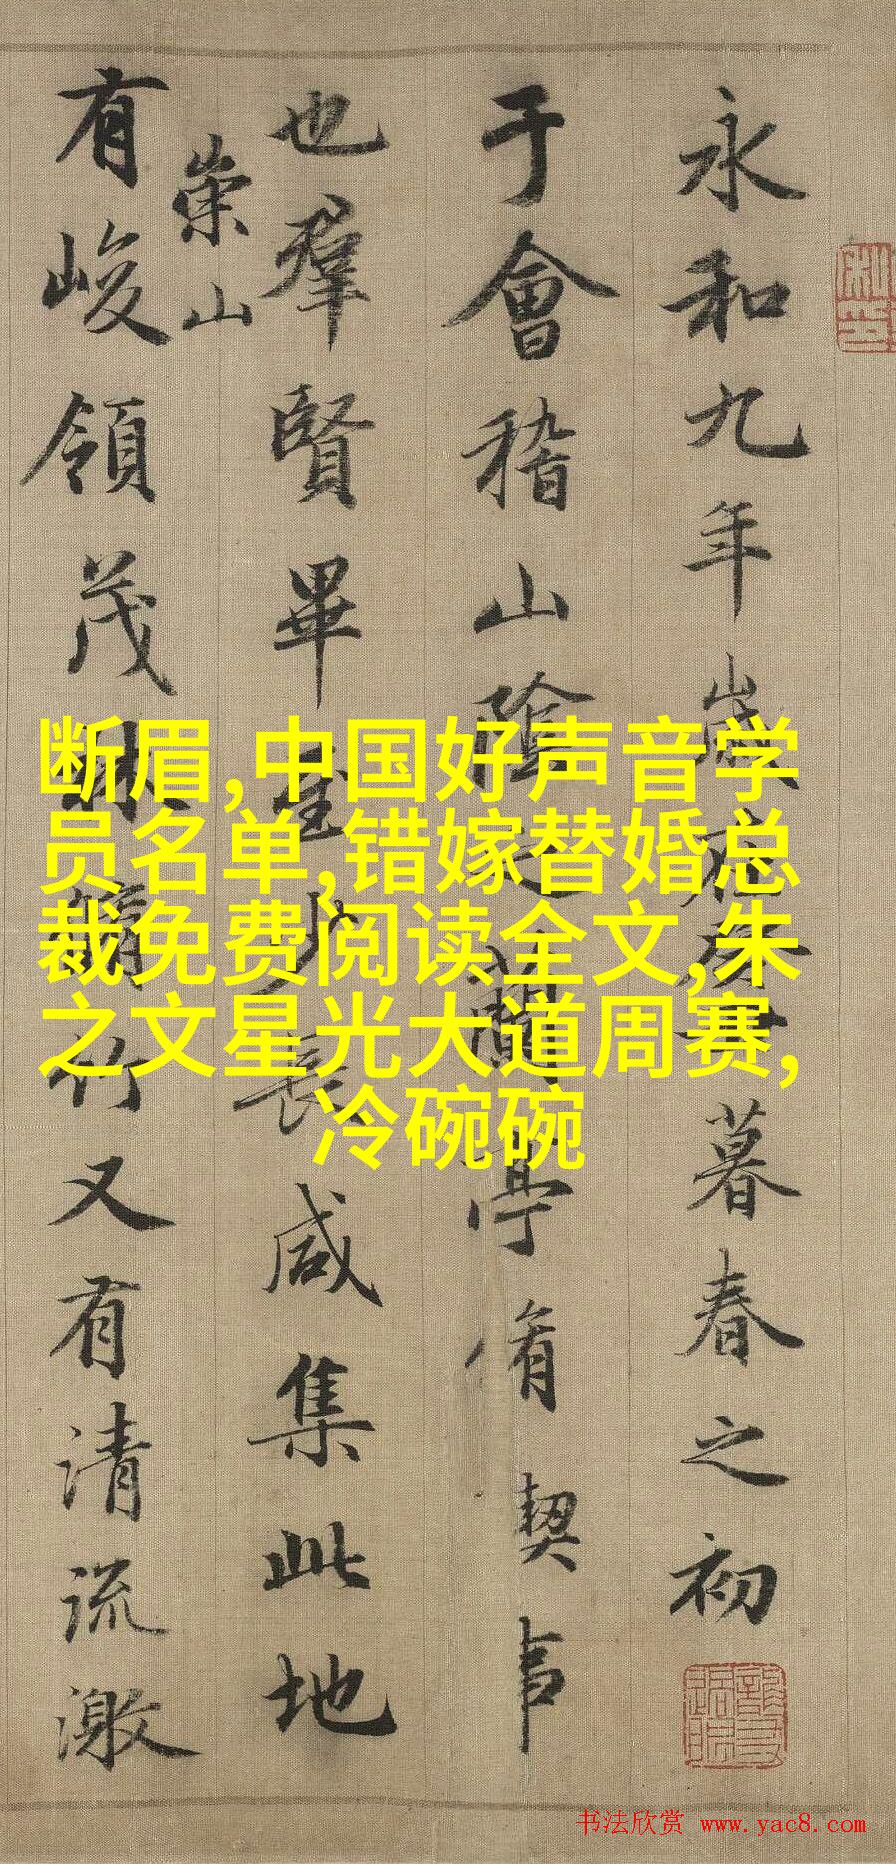 永和九年歲在癸暮春之初
于會稽山陰之蘭亭脩契事
也羣賢畢至少長咸集此地
崇山
有峻領茂林脩竹又有清流激
断眉,中国好声音学
员名单,错嫁替婚总
裁免费阅读全文,朱
之文星光大道周赛,
冷碗碗
书法欣赏 www.yac8.com